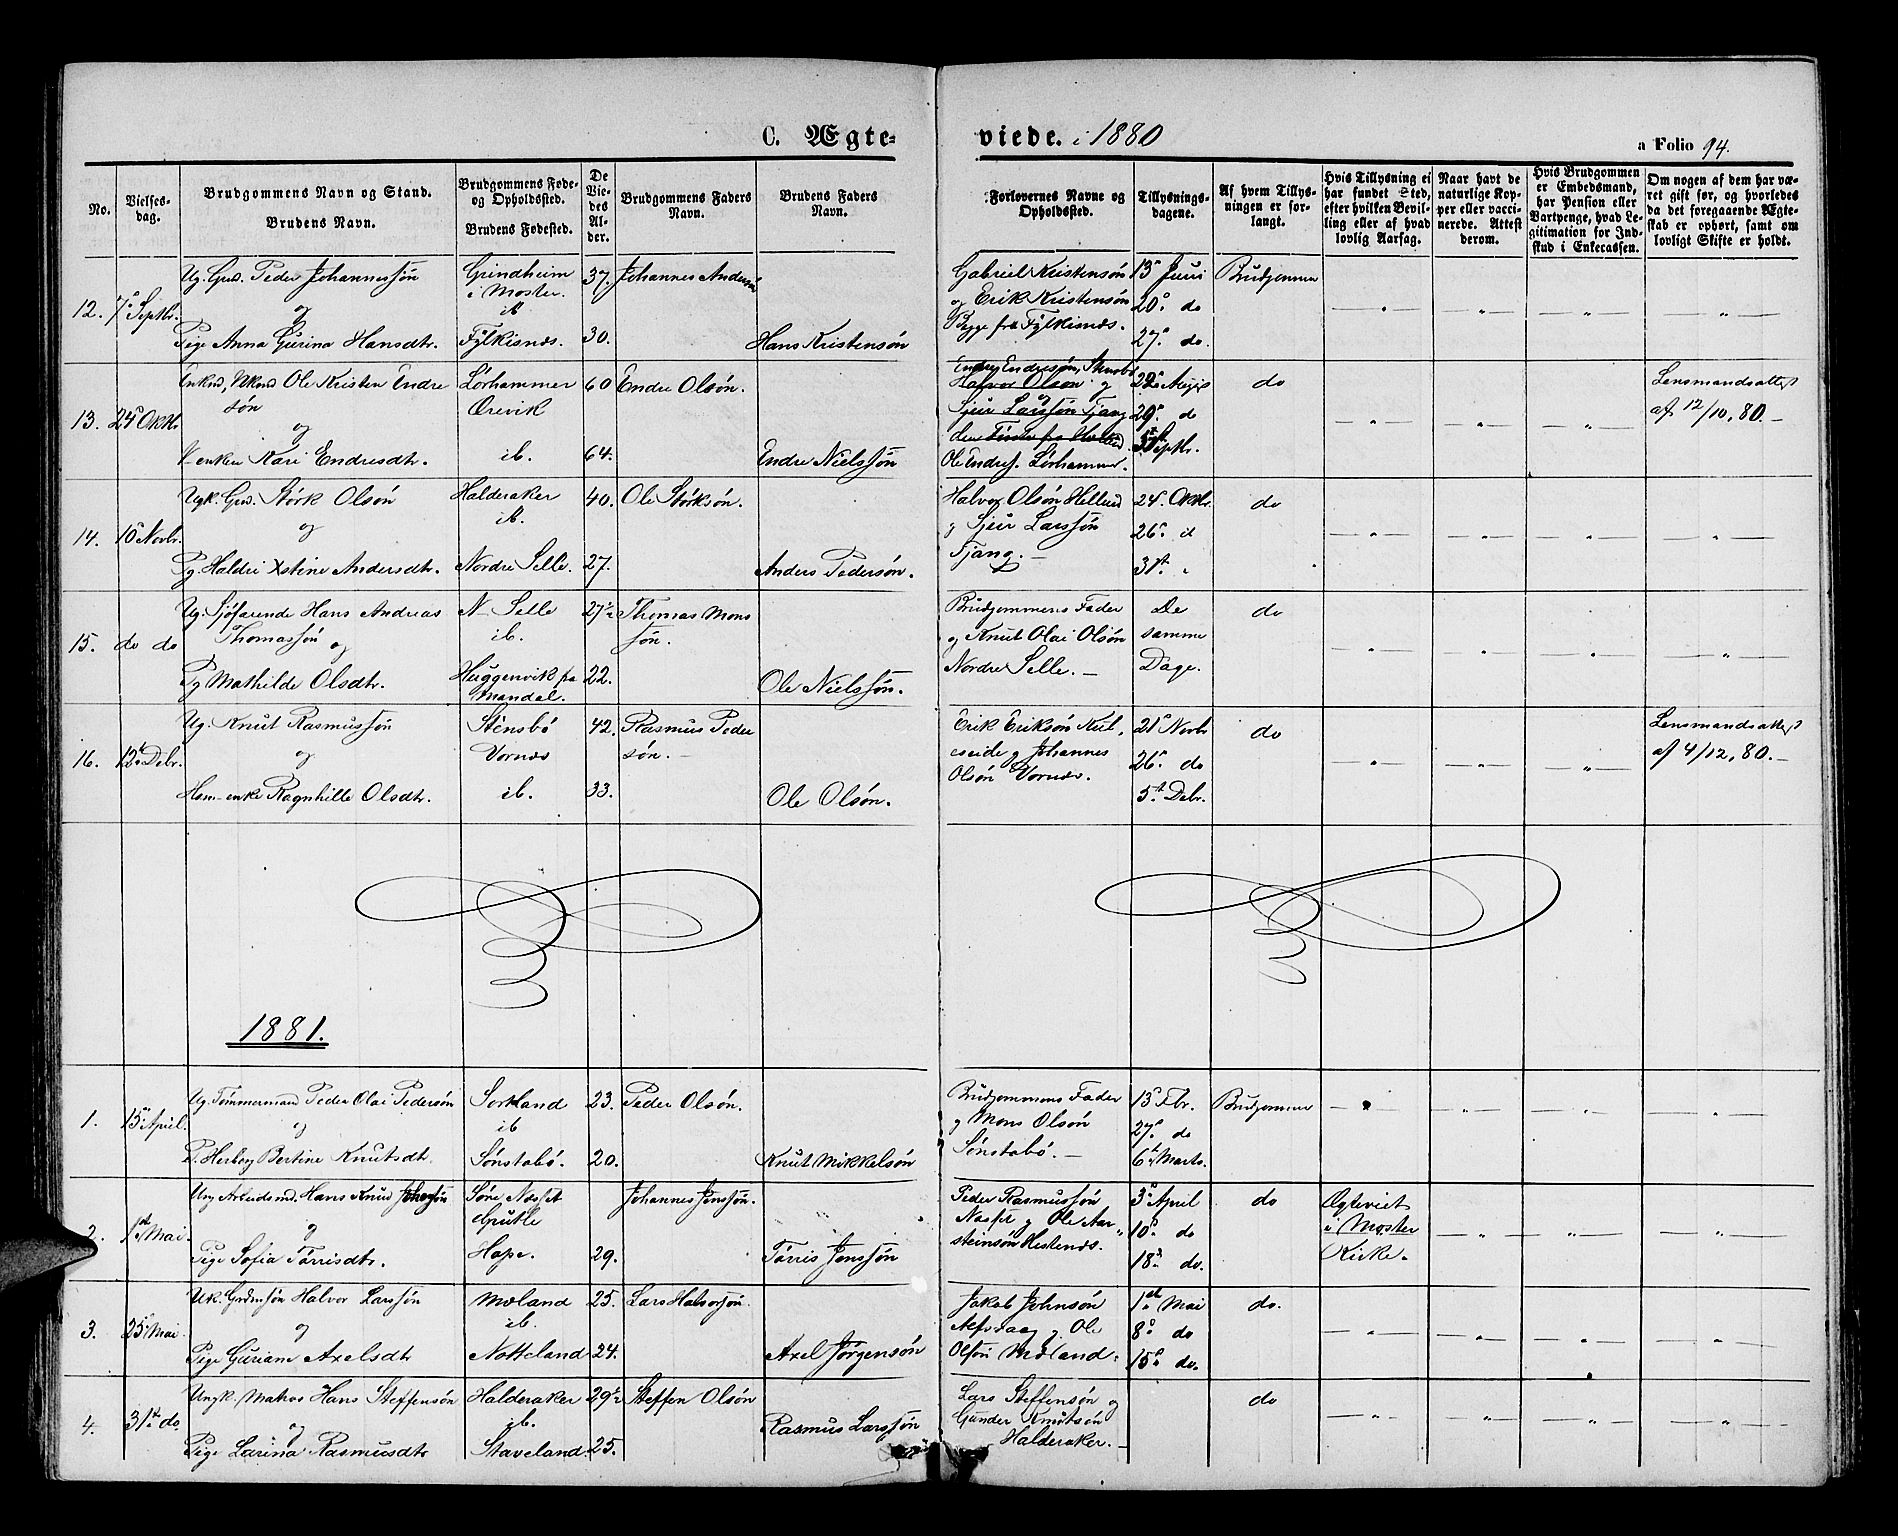 C. Ægteviede. i 1880
a Folio 94.
No.
Vielsesdag.
Brudgommens Navn og Stand.
Brudens Navn.
Brudgommens Føde- og Opholdsted.
Brudens Fødested.
De Viedes Alder.
Brudgommens Faders Navn.
Brudens Faders Navn.
Forlovernes Navne og Opholdsted.
Tillysningsdagene.
Af hvem Tillysningen er forlangt.
Hvis Tillysning ei har fundet Sted, efter hvilken Bevilling eller af hvad lovlig Aarsag.
Naar havt de naturlige Kopper eller vaccinerede. Attest derom.
Hvis Brudgommen er Embedsmand, har Pension eller Vartpenge, hvad Legitimation for Indskud i Enkecassen.
Om nogen af dem har været gift før, og hvorledes da det foregaaende Ægteskab er ophørt, samt om lovligt Skifte er holdt.
12. 7de Septbr.
Ug. Grd. Peder Johannessøn
og
Pige Anna Gurina Hansdtr.
Grindheim i Moster.
ib
Fylkisnæs.
37.
30.
Johannes Andersøn
Hans Kristensøn
Gabriel Kristensøn
og Erik Kristensøn
Begge fra Fylkisnæs.
13de Juni
20de do
27de do.
Brudgommen
13. 24de Oktbr.
Enkmd, Ole Kristen Endre
søn
og
Enken Kari Endresdtr.
Lørhammer
Ørevik
ib.
60
64.
Endre Olsøn.
Endre Nielssøn
Endre Endresøn,
Halvor Olsøn og
Sjur Larssøn Tjang
Ole Endress. Lørhammer.
22de Augs
29de do
5te Septbr.
do
Lensmandsattest
af 12/10, 80. –
14. 10de Novbr.
Ugk. Grd. Størk Olsøn
og
Pg. Haldri Xstine Andersdtr.
Halderaker
ib.
Nordre Selle.
40.
27.
Ole Størksøn.
Anders Pedersøn.
Halvor Olsøn Helland
og Sjur Larssøn
Tjang. –
24de Oktbr.
26de d
31te "
do
15. do do
Ug. Sjøfarende Hans Andreas
Thomassøn
og
Pg Mathilde Olsdtr.
N– Selle
ib.
Huggenvik fra
Mandal.
27½
22.
Thomas Mons
søn.
Ole Nielssøn.
Brudgommens Fader
og Knut Olai Olsøn
Nordre Selle. –
De
samme
Dage.
do
16. 12te Debr.
Ug. Knut Rasmussøn
og
Ragnhille Olsdtr.
Stensbø
Vornæs
ib.
42.
33.
Rasmus Peder
søn. –
Ole Olsøn.
Erik Eriksøn Kut,
eseide og Johannes
Olsøn Vornæs.
21de Novbr
26de do
5te Debr.
do
Lensmandsattest
af 4/12, 80. –
1881.
1. 15de April.
Ug. Tømmermand Peder Olai Pedersøn
og
P. Herborg Bertine Knutsdtr.
Sortland
ib
Sønstabø.
23.
20.
Peder Olsøn.
Knut Mikkelsøn
Brudgommens Fader
og Mons Olsøn
Sønstabø. –
13de Febr.
27de do
6te Marts.
Brudgommen
2. 1ste Mai.
Ung Arbeidsmd. Hans Knud Johanssøn
og
Pige Sofia Tørrisdtr.
Søre Næsset
Grutle
Hope.
29.
Johannes Jenssøn.
Tørris Jonssøn
Peder Rasmussøn
Næsset og Ole Aar-
steinsøn Hestenæs.
3de April
10de do
18de do.
do
Ægteviet
i Moster
Kirke.
3. 25de Mai
Uk. Grdmsøn Halvor Larssøn
og
Pige Guriane Axelsdtr
Mæland
ib.
Notteland
25.
24.
Lars Halvorssøn.
Axel Jørgensøn
Jakob Johnsøn
og Ole
Olsøn Mæland.
1ste Mai
8de do
15de do.
do.
4. 31te do.
Ungk. Matros Hans Steffensøn
og
Pige Larina Rasmusdtr
Halderaker
ib.
Staveland.
29½
25.
Steffen Olsøn
Rasmus Larssøn
Lars Steffensøn og
Gunder Knutsøn
Halderaker. –
do